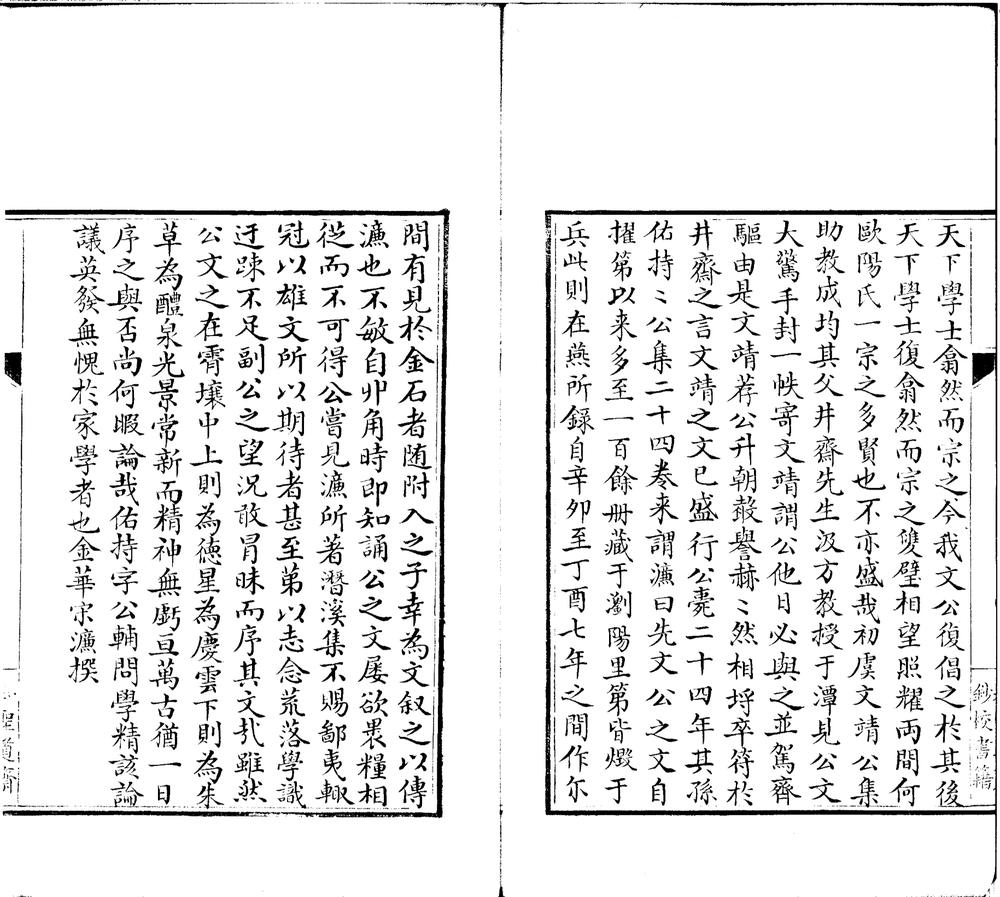 天下學士翕然而宗之今我文公復倡之於其後
天下學士復翕然而宗之雙璧相望照耀両間何
歐陽氏一宗之多賢也不亦盛哉初虞文靖公集
助教成均其父井齋先生汲方教授于潭見公文
大驚手封一帙寄文靖謂公他日必與之並駕齊
驅由是文靖荐公升朝聲譽赫〻然相埒卒符於
井齋之言文靖之文已盛行公薨二十四年其孫
佑持〻公集二十四卷来謂濂曰先文公之文自
擢第以来多至一百餘冊藏于瀏陽里第皆燬于
兵此則在燕所錄自辛夘至丁酉七年之間作尔
間有見於金石者随附入之子幸為文叙之以傳
濂也不敏自丱角時即知誦公之文屡欲褁糧相
從而不可得公嘗見濂所著潛溪集不賜鄙夷輙
冠以雄文所以期待者甚至第以志念荒落學識
迂踈不足副公之望況敢冒昧而序其文㢤雖然
公文之在霄壤中上則為德星為慶雲下則為朱
草為醴泉光景常新而精神無虧亘萬古猶一日
序之與否尚何暇論哉佑持字公輔問學精該論
議英發無愧於家學者也金華宋濂撰
鈔校書籍
聖道齋